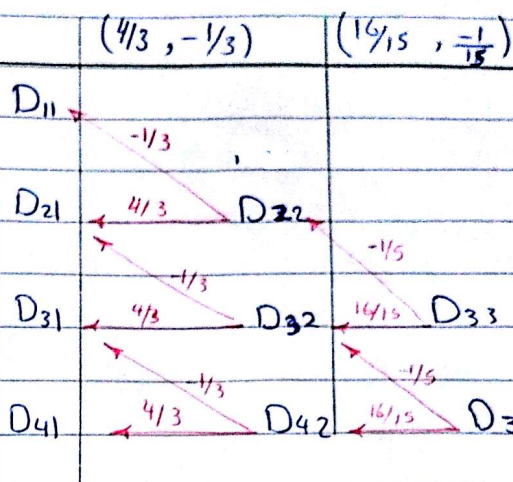 (4/3 , -1/3) (16/15 , -1/15)
D11
-1/3
D21 4/3 D22
-1/5
-1/3
D31 4/3 D32 16/15 D33
-1/3 -1/5
D41 4/3 D42 16/15 D3